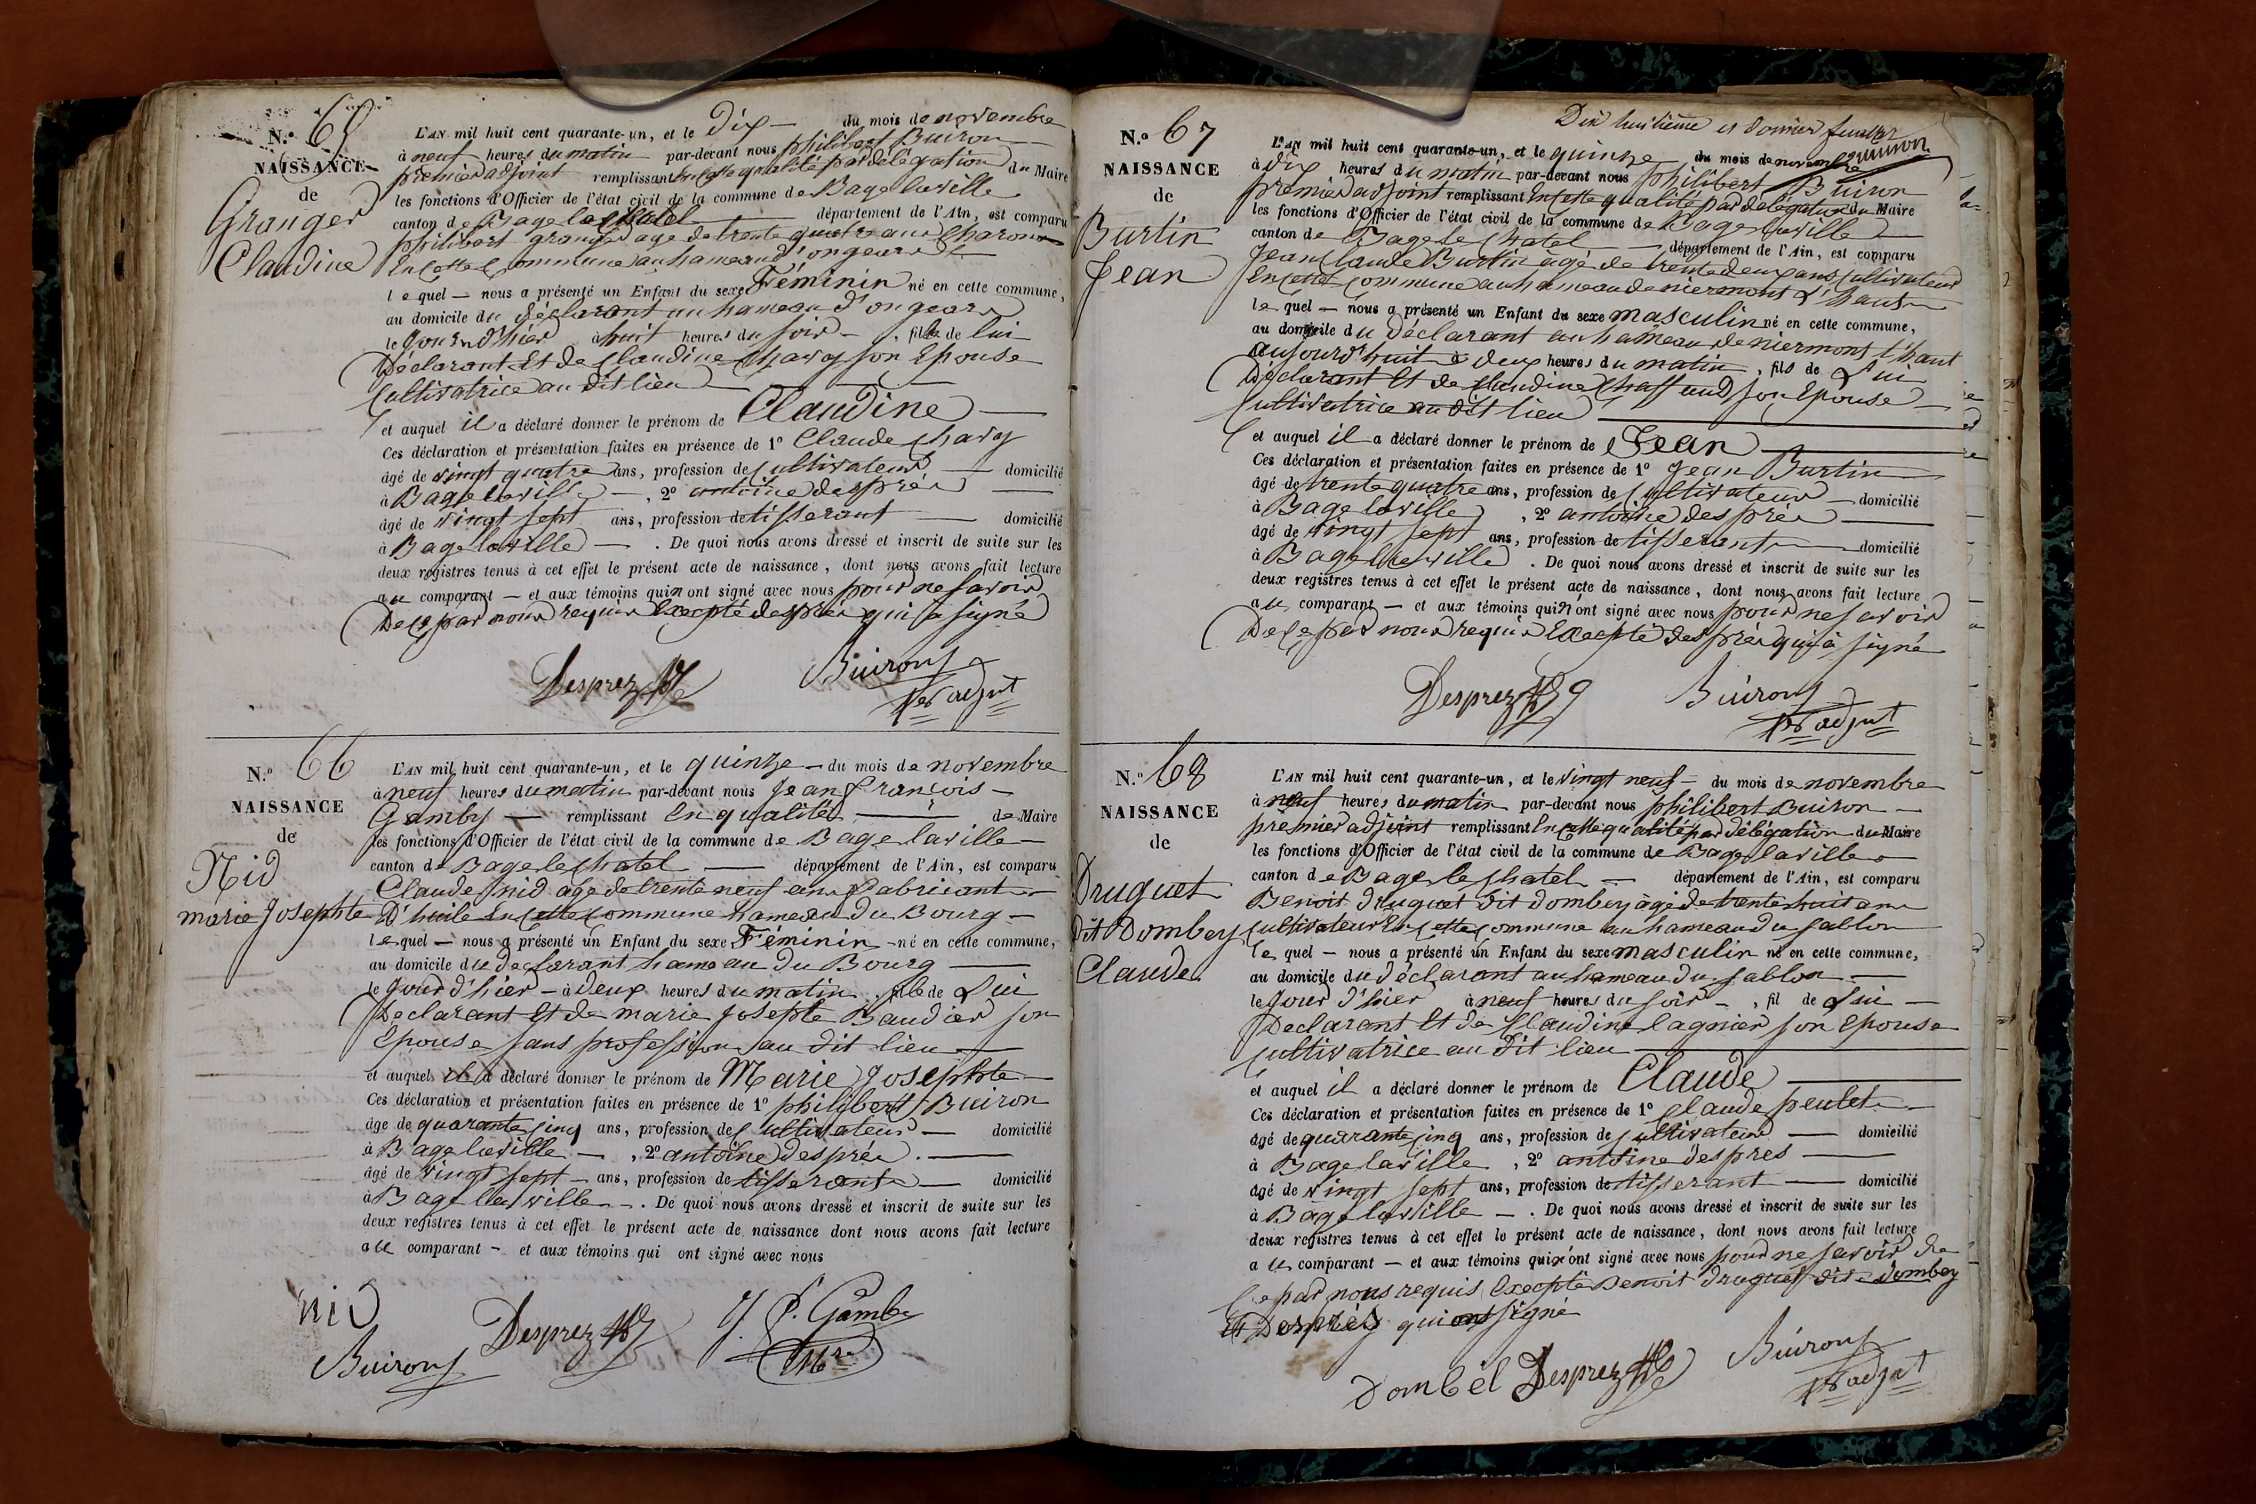 N.º 65
NAISSANCE
de
Granger
Claudine
L'AN mil huit cent quarante-un, et le Dix du mois de novembre
à neuf heures du matin par-devant nous philibert Buiron
premier adjoint remplissant en cette qualité par délégation du Maire
les fonctions d'Officier de l'état civil de la commune de Bage laville
canton de Bage le chatel département de l'Ain, est comparu
philibert granger age de trente quatre ans charon
En cette Commune au hameau d'ongeare
le quel — nous a présenté un Enfant du sexe Féminin né en cette commune,
au domicile du déclarant au hameau d'ongear
le jour d'hier à huit heures du soir, fille de lui
Déclarant Et de Claudine Chary son Epouse
Cultivatrice au dit lieu
et auquel il a déclaré donner le prénom de Claudine
Ces déclaration et présentation faites en présence de 1º Claude Chary
âgé de vingt quatre ans, profession de Cultivateur domicilié
à Bage laville, 2º antoine desprée
âgé de vingt sept ans, profession de tisserant domicilié
à Bage laville. De quoi nous avons dressé et inscrit de suite sur les
deux registres tenus à cet effet le présent acte de naissance, dont nous avons fait lecture
au comparant — et aux témoins qui n'ont signé avec nous pour ne savoir
De ce par nous requis Excepté desprée qui a signé
Desprez Buiron
1er adjnt
N.º 66
NAISSANCE
de
Nid
marie Josephte
L'AN mil huit cent quarante-un, et le quinze du mois de novembre
à neuf heures du matin par-devant nous Jean François
Gamby remplissant En qualité de Maire
les fonctions d'Officier de l'état civil de la commune de Bage laville
canton de Bage le chatel département de l'Ain, est comparu
Claude nid age de trente neuf ans Fabricant
D'huile En cette Commune hameau du Bourg
le quel — nous a présenté un Enfant du sexe Féminin né en cette commune,
au domicile du declarant hameau du Bourg
le Jour d'hier à deux heures du matin, fille de Lui
Declarant Et de marie Josepte Baudier son
Epouse sans profession au dit lieu
et auquel il a déclaré donner le prénom de Marie Josephte
Ces déclaration et présentation faites en présence de 1º philibert Buiron
âgé de quarante Cinq ans, profession de Cultivateur domicilié
à Bage laville, 2º antoine desprée
âgé de vingt sept ans, profession de tisserant domicilié
à Bage laville. De quoi nous avons dressé et inscrit de suite sur les
deux registres tenus à cet effet le présent acte de naissance dont nous avons fait lecture
au comparant — et aux témoins qui ont signé avec nous
nid Desprez J. F. Gamby
Buiron Mre
Dix huitième et dernier feuillet
N.º 67
NAISSANCE
de
Burtin
Jean
L'AN mil huit cent quarante-un, et le quinze du mois de novembre
à Dix heures du matin par-devant nous philibert Buiron
premier adjoint remplissant En cette qualité par délégation du Maire
les fonctions d'Officier de l'état civil de la commune de Bage laville
canton de Bage le Chatel département de l'Ain, est comparu
Jean Claude Burtin agé de trente deux ans Cultivateur
En Cette Commune au hameau de niermont L'haut
le quel — nous a présenté un Enfant du sexe masculin né en cette commune,
au domicile du Déclarant au hameau de niermont l'haut
aujourd'huit à deux heures du matin, fils de Lui
Déclarant Et de Claudine Chaffaud son Epouse
Cultivatrice au dit lieu
et auquel il a déclaré donner le prénom de Jean
Ces déclaration et présentation faites en présence de 1º Jean Burtin
âgé de trente quatre ans, profession de Cultivateur domicilié
à Bage laville, 2º antoine desprée
âgé de vingt sept ans, profession de tisserant domicilié
à Bage laville. De quoi nous avons dressé et inscrit de suite sur les
deux registres tenus à cet effet le présent acte de naissance, dont nous avons fait lecture
au comparant — et aux témoins qui n'ont signé avec nous pour ne savoir
De ce par nous requis Excepté desprée qui à signé
Desprez Buiron
1er adjnt
N.º 68
NAISSANCE
de
Druguet
dit Dombey
Claude
L'AN mil huit cent quarante-un, et le vingt neuf du mois de novembre
à neuf heures du matin par-devant nous philibert Buiron
premier adjoint remplissant En cette qualité par délégation du Maire
les fonctions d'Officier de l'état civil de la commune de Bage laville
canton de Bage le Chatel département de l'Ain, est comparu
Benoit druguet dit dombey agé de trente huit ans
Cultivateur En cette commune au hameau du sablon
le quel — nous a présenté un Enfant du sexe masculin né en cette commune,
au domicile du déclarant au hameau du sablon
le Jour d'hier à neuf heures du soir, fil de Lui
Declarant Et de Claudine Lagnier son Epouse
Cultivatrice au dit lieu
et auquel il a déclaré donner le prénom de Claude
Ces déclaration et présentation faites en présence de 1º Claude peulet
âgé de quarante cinq ans, profession de Cultivateur domicilié
à Bage laville, 2º antoine despres
âgé de vingt sept ans, profession de tisserant domicilié
à Bage laville. De quoi nous avons dressé et inscrit de suite sur les
deux registres tenus à cet effet le présent acte de naissance, dont nous avons fait lecture
au comparant — et aux témoins qui n'ont signé avec nous pour ne savoir de
Ce par nous requis Excepté Benoit druguet dit dombey
Et Després qui ont signé
Dombél Desprez Buiron
1er adjnt